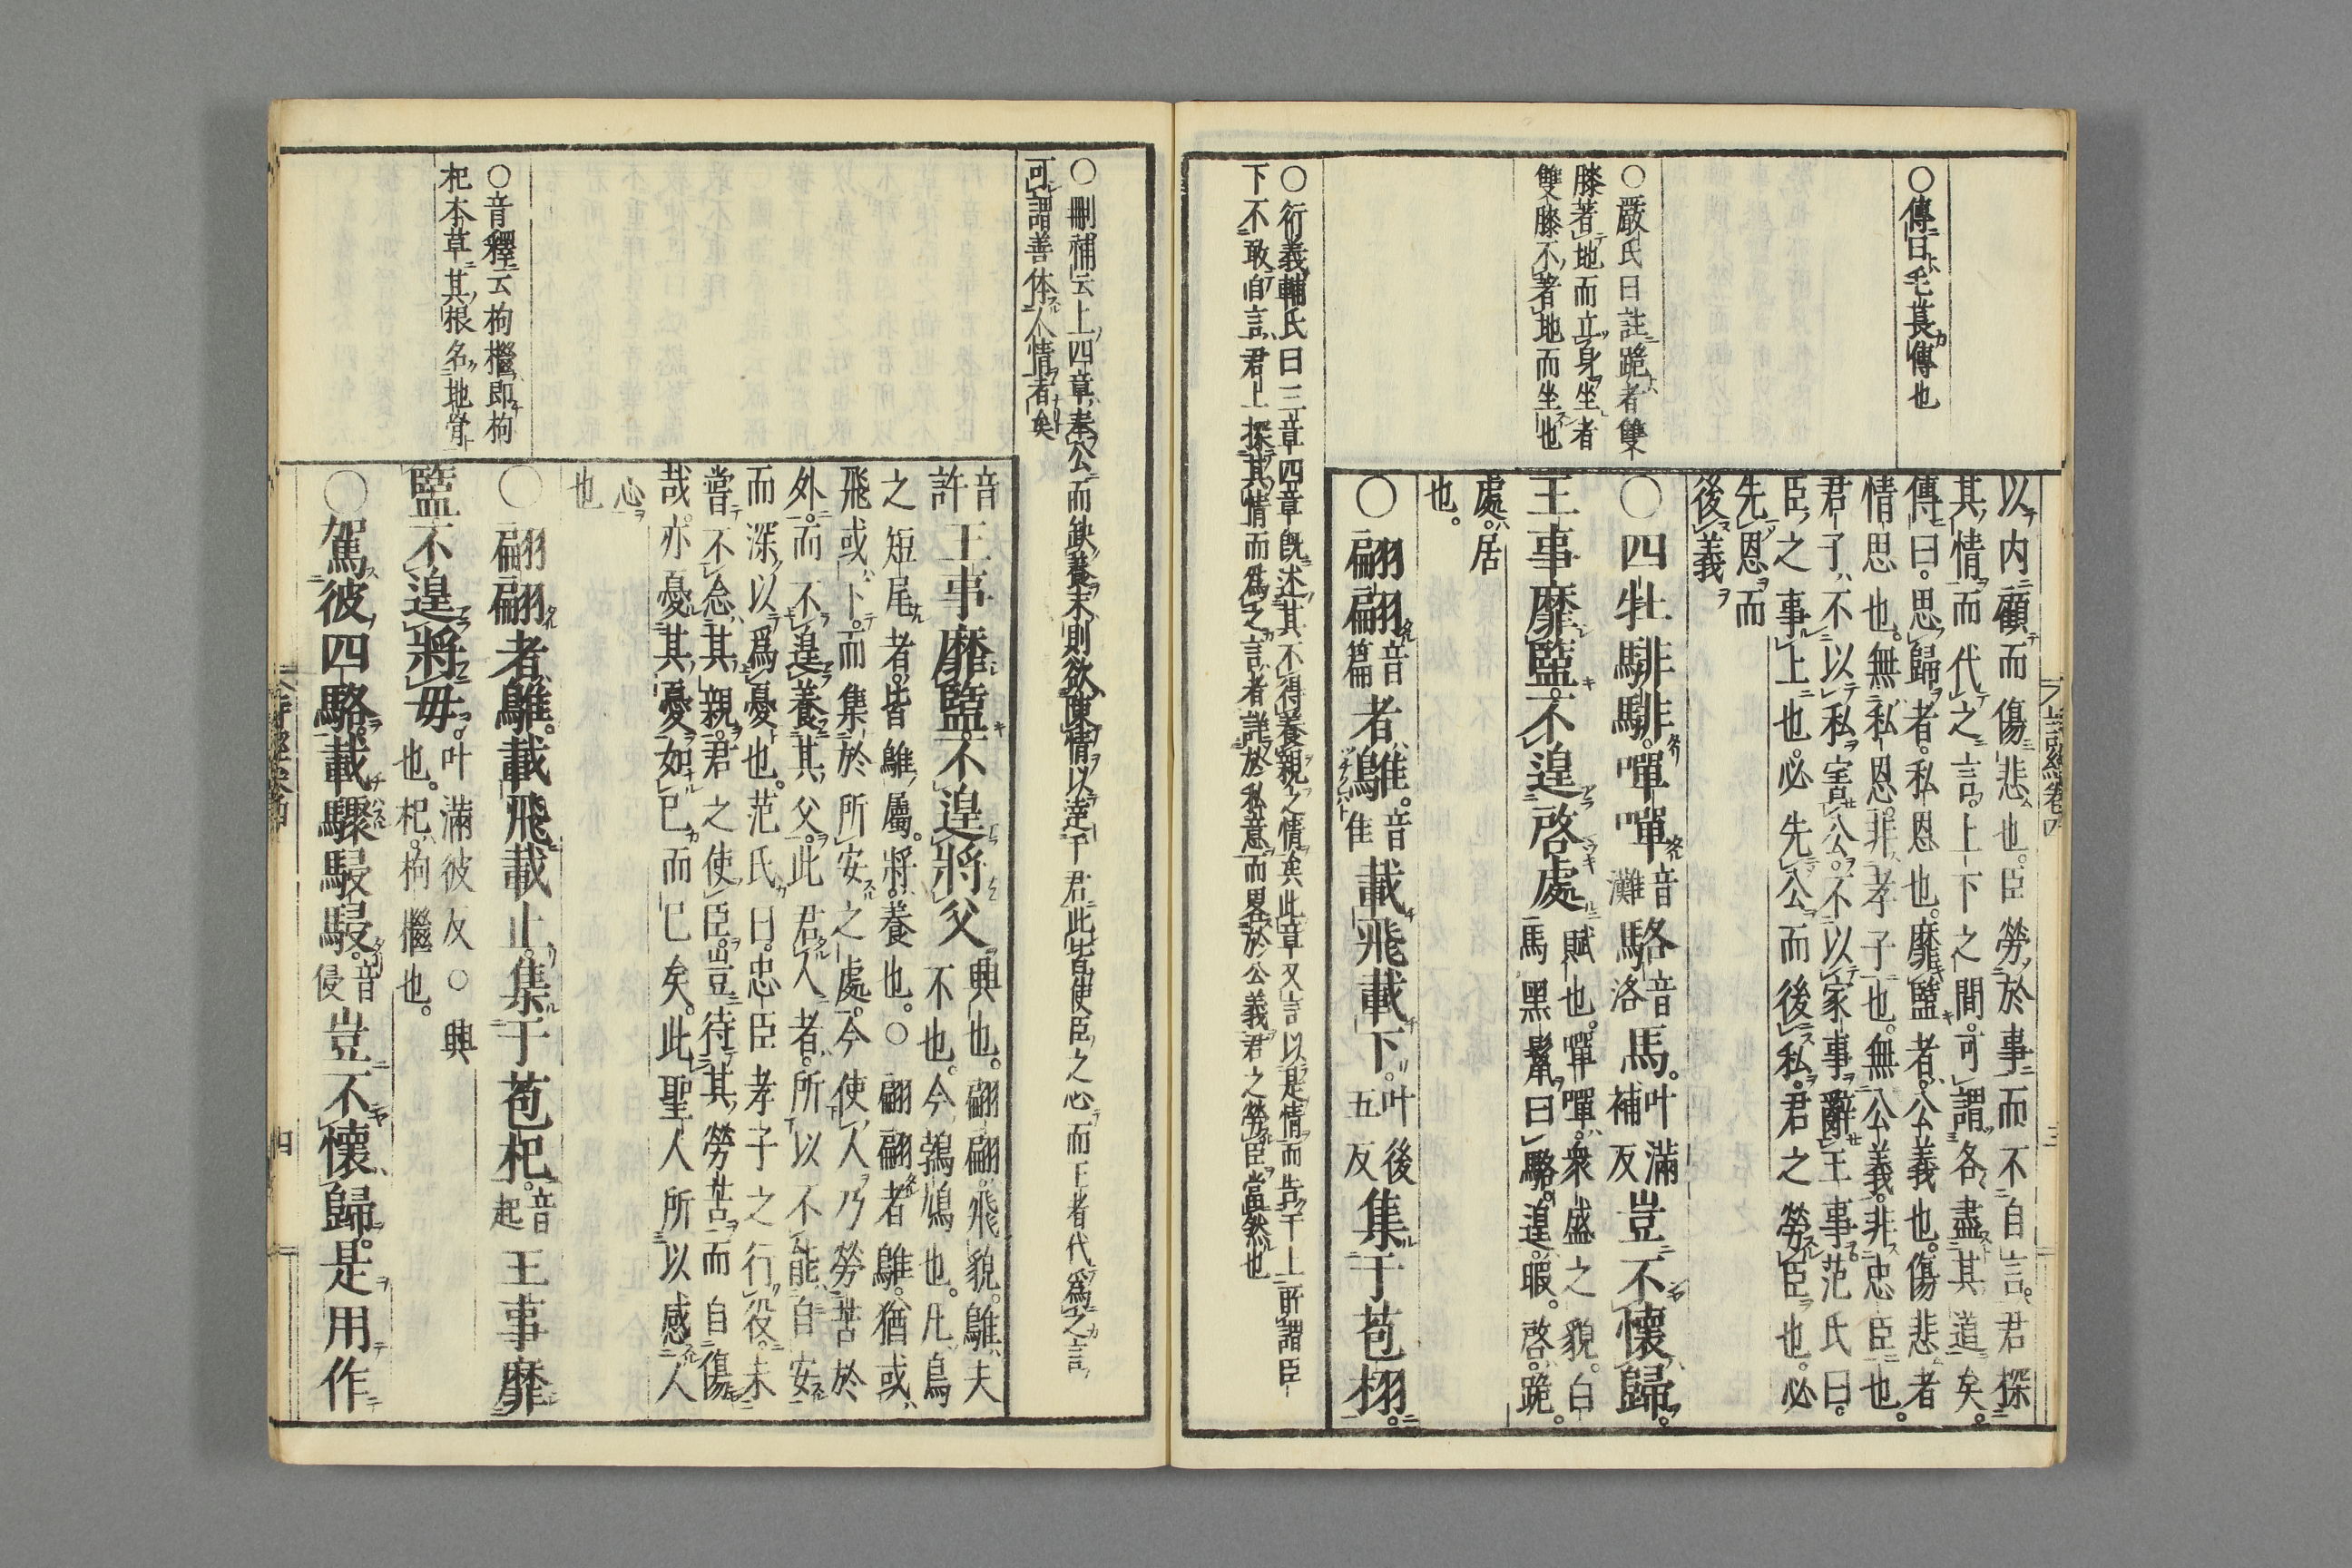 ○傳曰毛萇傳也
○嚴氏曰註跪者雙
膝著地而立身坐者
雙膝不著地而坐也
以内顧而傷悲也。臣勞於事而不自言。君探
其情而代之言。上下之間。可謂各盡其道矣。
傳曰。思歸者。私恩也。靡盬者。公義也。傷悲者
情思也。無私恩。非孝子也。無公義。非忠臣也。
君子不以私害公。不以家事辭王事。范氏曰。
臣之事上也。必先公而後私。君之勞臣也。必
先恩而
後義
○四牡騑騑。嘽嘽音灘駱音洛馬。叶滿補反豈不懷歸。
王事靡盬。不遑啓處賦也。嘽嘽。衆盛之貌。白馬黑鬣曰駱。遑。暇。啓。跪。
處。居
也。
○翩翩音篇者鵻。音隹載飛載下。叶後五反集于苞栩。
○衍義輔氏曰三章四章既述其不得養親之情矣此章又言以是情而告于上所謂臣
下不敢自言君上探其情而爲之言者詳於私意而畧於公義君之勞臣當然也
○刪補云上四章奉公而缺養末則欲陳情以達于君此皆使臣之心而王者代爲之言
可謂善体人情者矣
○音釋云枸檵即枸
杞本草其根名地骨
音許王事靡盬。不遑將父興也。翩翩。飛貌。鵻。夫不也。今鵓鳩也。凡鳥
之短尾者。皆鵻屬。將。養也。○翩翩者鵻。猶或
飛或下。而集於所安之處。今使人乃勞苦於
外。而不遑養其父。此君人者。所以不能自安
而深以爲憂也。范氏曰。忠臣孝子之行役。未
嘗不念其親。君之使臣。豈待其勞苦而自傷
哉。亦憂其憂如己而已矣。此聖人所以感人
心
也
○翩翩者鵻。載飛載止。集于苞杞。音起王事靡
盬不遑將母。叶滿彼反○興也。杞。枸檵也。
○駕彼四駱。載驟駸駸。音侵豈不懷歸。是用作